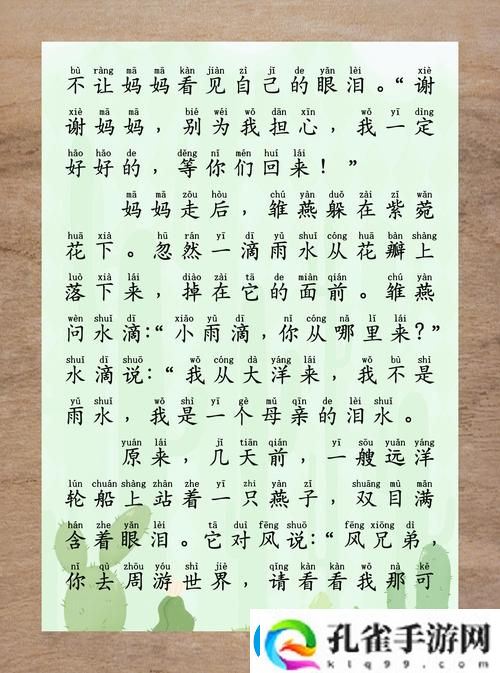 bù ràng mā mā kàn jiàn zì jǐ de yǎn lèi xiè
不让妈妈看见自己的眼泪。“谢
xiè mā mā bié wèi wǒ dān xīn wǒ yī dìng
谢妈妈，别为我担心，我一定
hǎo hǎo de děng nǐ men huí lái
好好的，等你们回来！”
mā mā zǒu hòu chú yàn duǒ zài zǐ wǎn
妈妈走后，雏燕躲在紫菀
huā xià hū rán yī dī yǔ shuǐ cóng huā bàn shàng
花下。忽然一滴雨水从花瓣上
luò xià lái diào zài tā de miàn qián chú yàn
落下来，掉在它的面前。雏燕
wèn shuǐ dī xiǎo yǔ dī nǐ cóng nǎ lǐ lái
问水滴：“小雨滴，你从哪里来？”
shuǐ dī shuō wǒ cóng dà yáng lái wǒ bù shì
水滴说：“我从大洋来，我不是
yǔ shuǐ wǒ shì yī gè mǔ qīn de lèi shuǐ
雨水，我是一个母亲的泪水。
yuán lái jǐ tiān qián yī sōu yuǎn yáng
原来，几天前，一艘远洋
lún chuán shàng zhàn zhe yī zhī yàn zi shuāng mù mǎn
轮船上站着一只燕子，双目满
hán zhe yǎn lèi tā duì fēng shuō fēng xiōng dì
含着眼泪。它对风说：“风兄弟，
nǐ qù zhōu yóu shì jiè qǐng kàn kàn wǒ nà kě
你去周游世界，请看看我那可
孔雀手游网
klq99.com